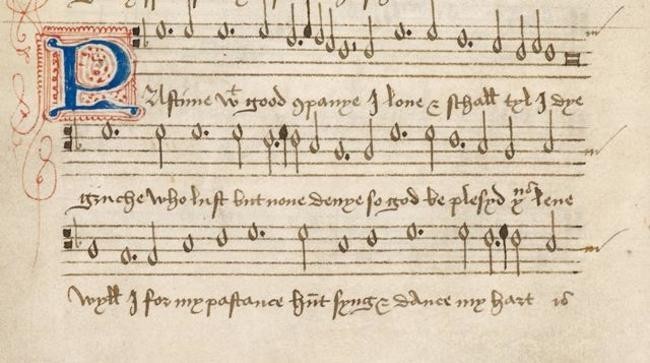 PAstime wᵗ good ꝯpanye I loue & schall tyl I dye
gruche who lust but none denye so god be plesyd yᵘˢ leue
wyll I for my pastance hūt syng & dance my hart is